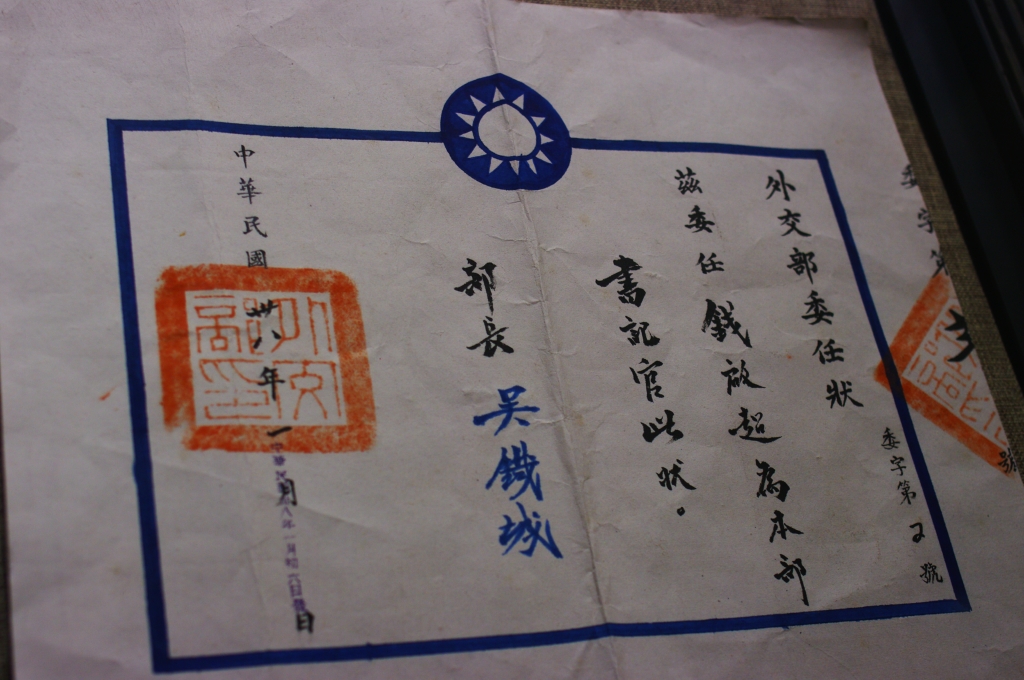 外交部委任狀
委字第 號
茲委任錢啟超為本部
書記官此狀。
部長 吳鐵城
中華民國卅八年一月 日
外交部印
委字第
號